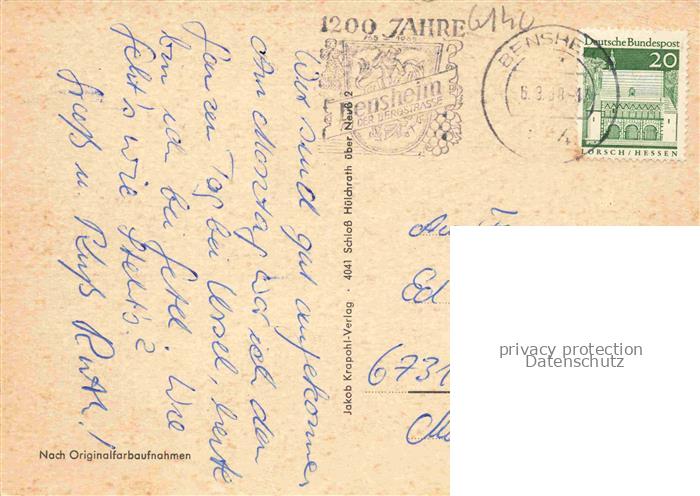 1200 JAHRE
6140
765 1965
Bensheim
DER BERGSTRASSE
BENSHE
6.3.68-1
Deutsche Bundespost
20
LORSCH/HESSEN
Wir sind gut angekommen
Am Montag war ich den
ganzen Tag bei Ursel, heute
bin ich bei
geht's wie steht's?
Gruß u. Kuß Ruth!
Jakob Krapohl-Verlag · 4041 Schloß Hülchrath über Neuß 2
Nach Originalfarbaufnahmen
Ed
6731
privacy protection
Datenschutz